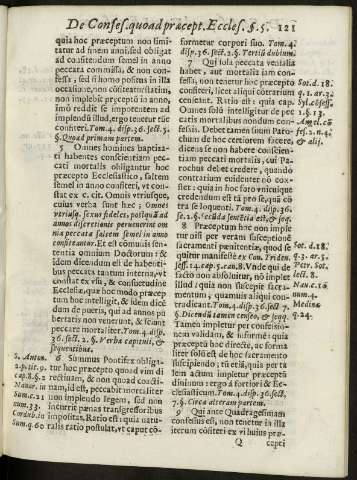 De Confess. quoad præcept. Eccles. §. 5. 121
quia hoc præceptum non limi-
tatur ad finem anni, sed obligat
ad confitendum semel in anno
peccata commissa, & non con-
fessa, sed si homo positus in illa
occasione, non confiteatur statim,
non implebit præceptū in anno,
imò reddit se impotentem ad
implendū illud, ergo tenetur tūc
confiteri. Tom. 4. disp. 36. sect. 5.
§. Quod primam partem.
5 Omnes homines baptiza-
ti habentes conscientiam pec-
cati mortalis obligantur hoc
præcepto Ecclesiastico, saltem
semel in anno confiteri, vt const-
at ex c. cit. Omnis vtriusque,
cuius verba sunt hęc; Omnis
vtriusq. sexus fidelis, postquā ad
annos discretionis peruenerit om
nia peccata saltem semel in anno
confiteantur. Et est communis sen-
tentia omnium Doctorum: &
idem dicendum est de habenti-
bus peccata tantum interna, vt
constat ex vsu, & consuetudine
Ecclesiæ, quæ hoc modo præcep
tum hoc intelligit, & idem dicē
dum de pueris, qui ad annos pu
bertatis non venerunt, & sciunt
peccare mortaliter. Tom. 4. disp.
36. sect. 2. §. Verba capituli, &
sequentibus.
6 Summus Pontifex obliga-
tur hoc præcepto ad vim di-
rectiuam, & non quoad coacti-
uam, id est, peccabit mortaliter
non implendo legem, sed non
incurrit pœnas transgressoribus
impositas. Ratio est: quia natu-
ralis ratio postulat, vt caput cō-
S. Anton.
2. p. tit. 9.
cap. 8. §. 2
Nauar. in
Sum. c. 21
num. 33.
Sum. q. 60
formetur corpori suo. Tom. 4.
disp. 36. sect. 2. §. Tertiū dubium.
7 Qui sola peccata venialia
habet, aut mortalia iam con-
fessa, non tenetur hoc præcepto
confiteri, licet aliqui cōtrarium
censeant. Ratio est: quia cap.
Omnis solū intelligitur de pec-
catis mortalibus nondum con-
fessis. Debet tamen suum Paro-
chum de hoc certiorem facere,
dicens se non habere conscien-
tiam peccati mortalis, cui Pa-
rochus debet credere, quando
contrarium euidenter nō cons-
tat: quia in hoc foro vnicuique
credendum est tā pro se, quā cō
tra se loquenti. Tom. 4. disp. 36.
sect. 2. §. secūda sentētia est, & seq.
8 Præceptum hoc non im-
pletur nisi per veram susceptionē
sacramenti pœnitentiæ, quod se
quitur manifestè ex Con. Triden.
sess. 14. cap. 5. can. 8. Vnde qui de
facto non absoluitur, nō implet
illud: quia non suscepie sacra-
mentum; quamuis aliqui con-
tradicant. Tom. 4. disp. 36. sect. 7
§. Dicendū tamen censeo, & seqq.
Tamen impletur per confessio-
nem validam, & informē: quia
præceptū hoc directè, ac forma-
liter solū est de hoc sacramento
suscipiendo; tū etiā, quia per ta
lem actum impletur præceptū
diuinum: ergo à fortiori & Ec-
clesiasticum. Tom. 4. disp. 36. sect.
7. §. Circa alteram partem.
9 Qui ante Quadragesimam
confessus est, non tenetur in illa
iterum cōfiteri ex vi huius præ-
Sot. d. 18.
q. 1. ar. 3.
1. §. 13.
Angel. cō
fes. 2. n. 4.
& alij.
Sot. d. 18.
q. 3. ar. 3.
Petr. Sot.
lect. 8.
Nau. c. 10
num. 4.
Medina
q. 24.
Q cepti